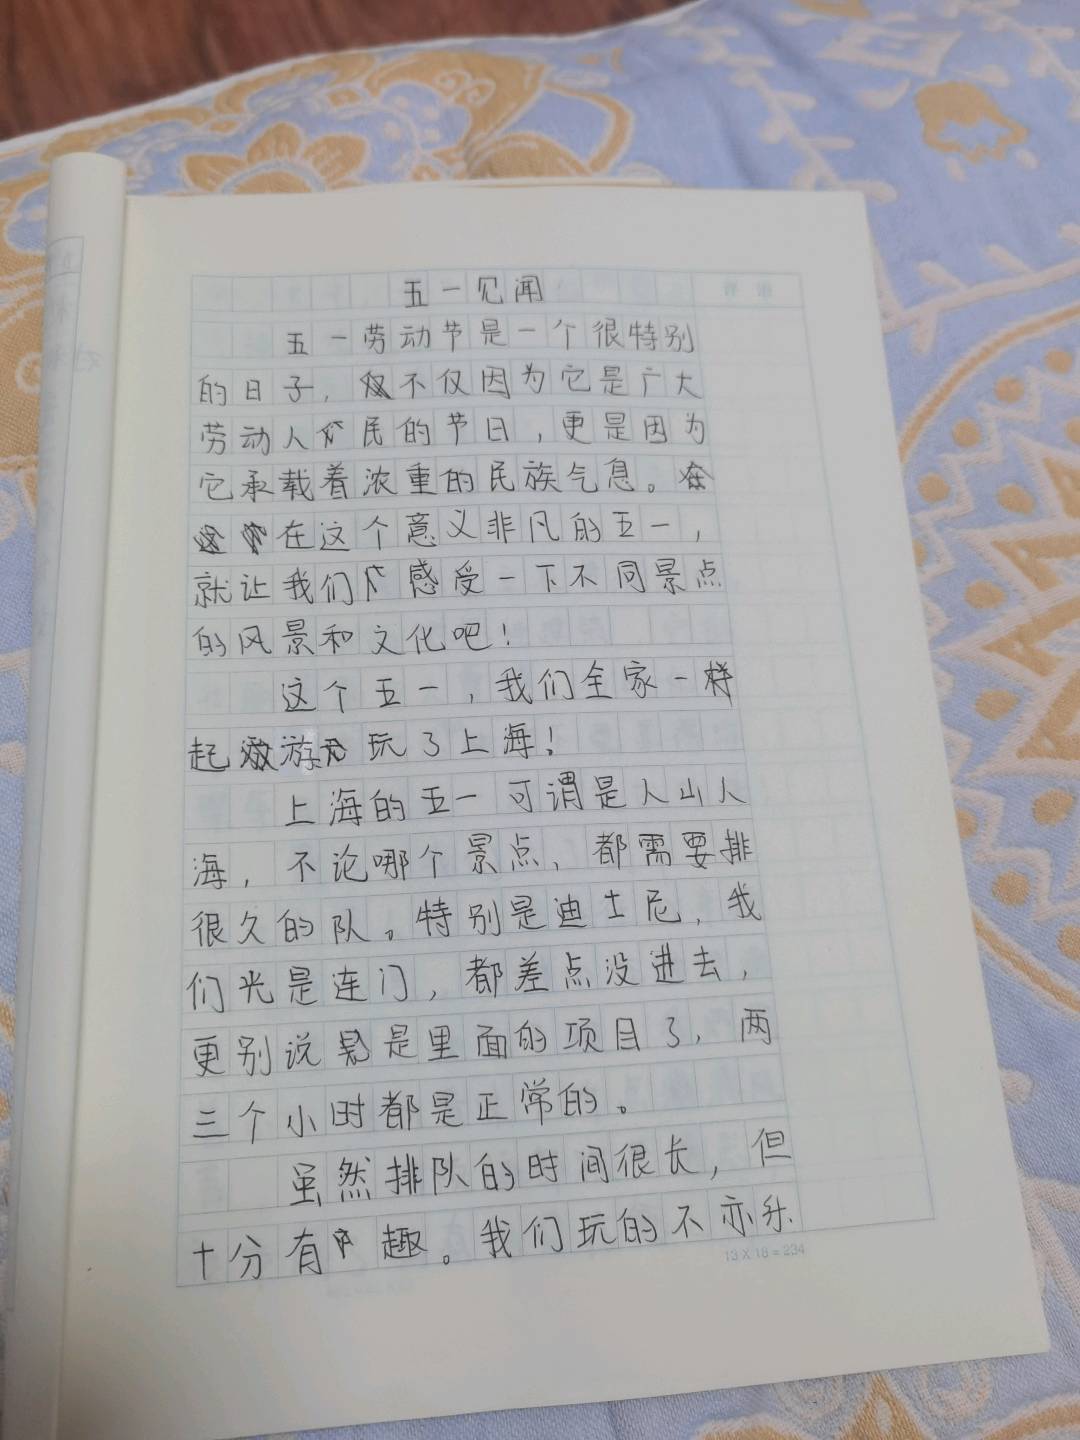 五一见闻
五一劳动节是一个很特别
的日子，不仅因为它是广大
劳动人民的节日，更是因为
它承载着浓重的民族气息。
在这个意义非凡的五一，
就让我们感受一下不同景点
的风景和文化吧！
这个五一，我们全家一样
起游玩了上海！
上海的五一可谓是人山人
海，不论哪个景点，都需要排
很久的队。特别是迪士尼，我
们光是连门，都差点没进去，
更别说是里面的项目了，两
三个小时都是正常的。
虽然排队的时间很长，但
十分有趣。我们玩的不亦乐
13 X 18 = 234